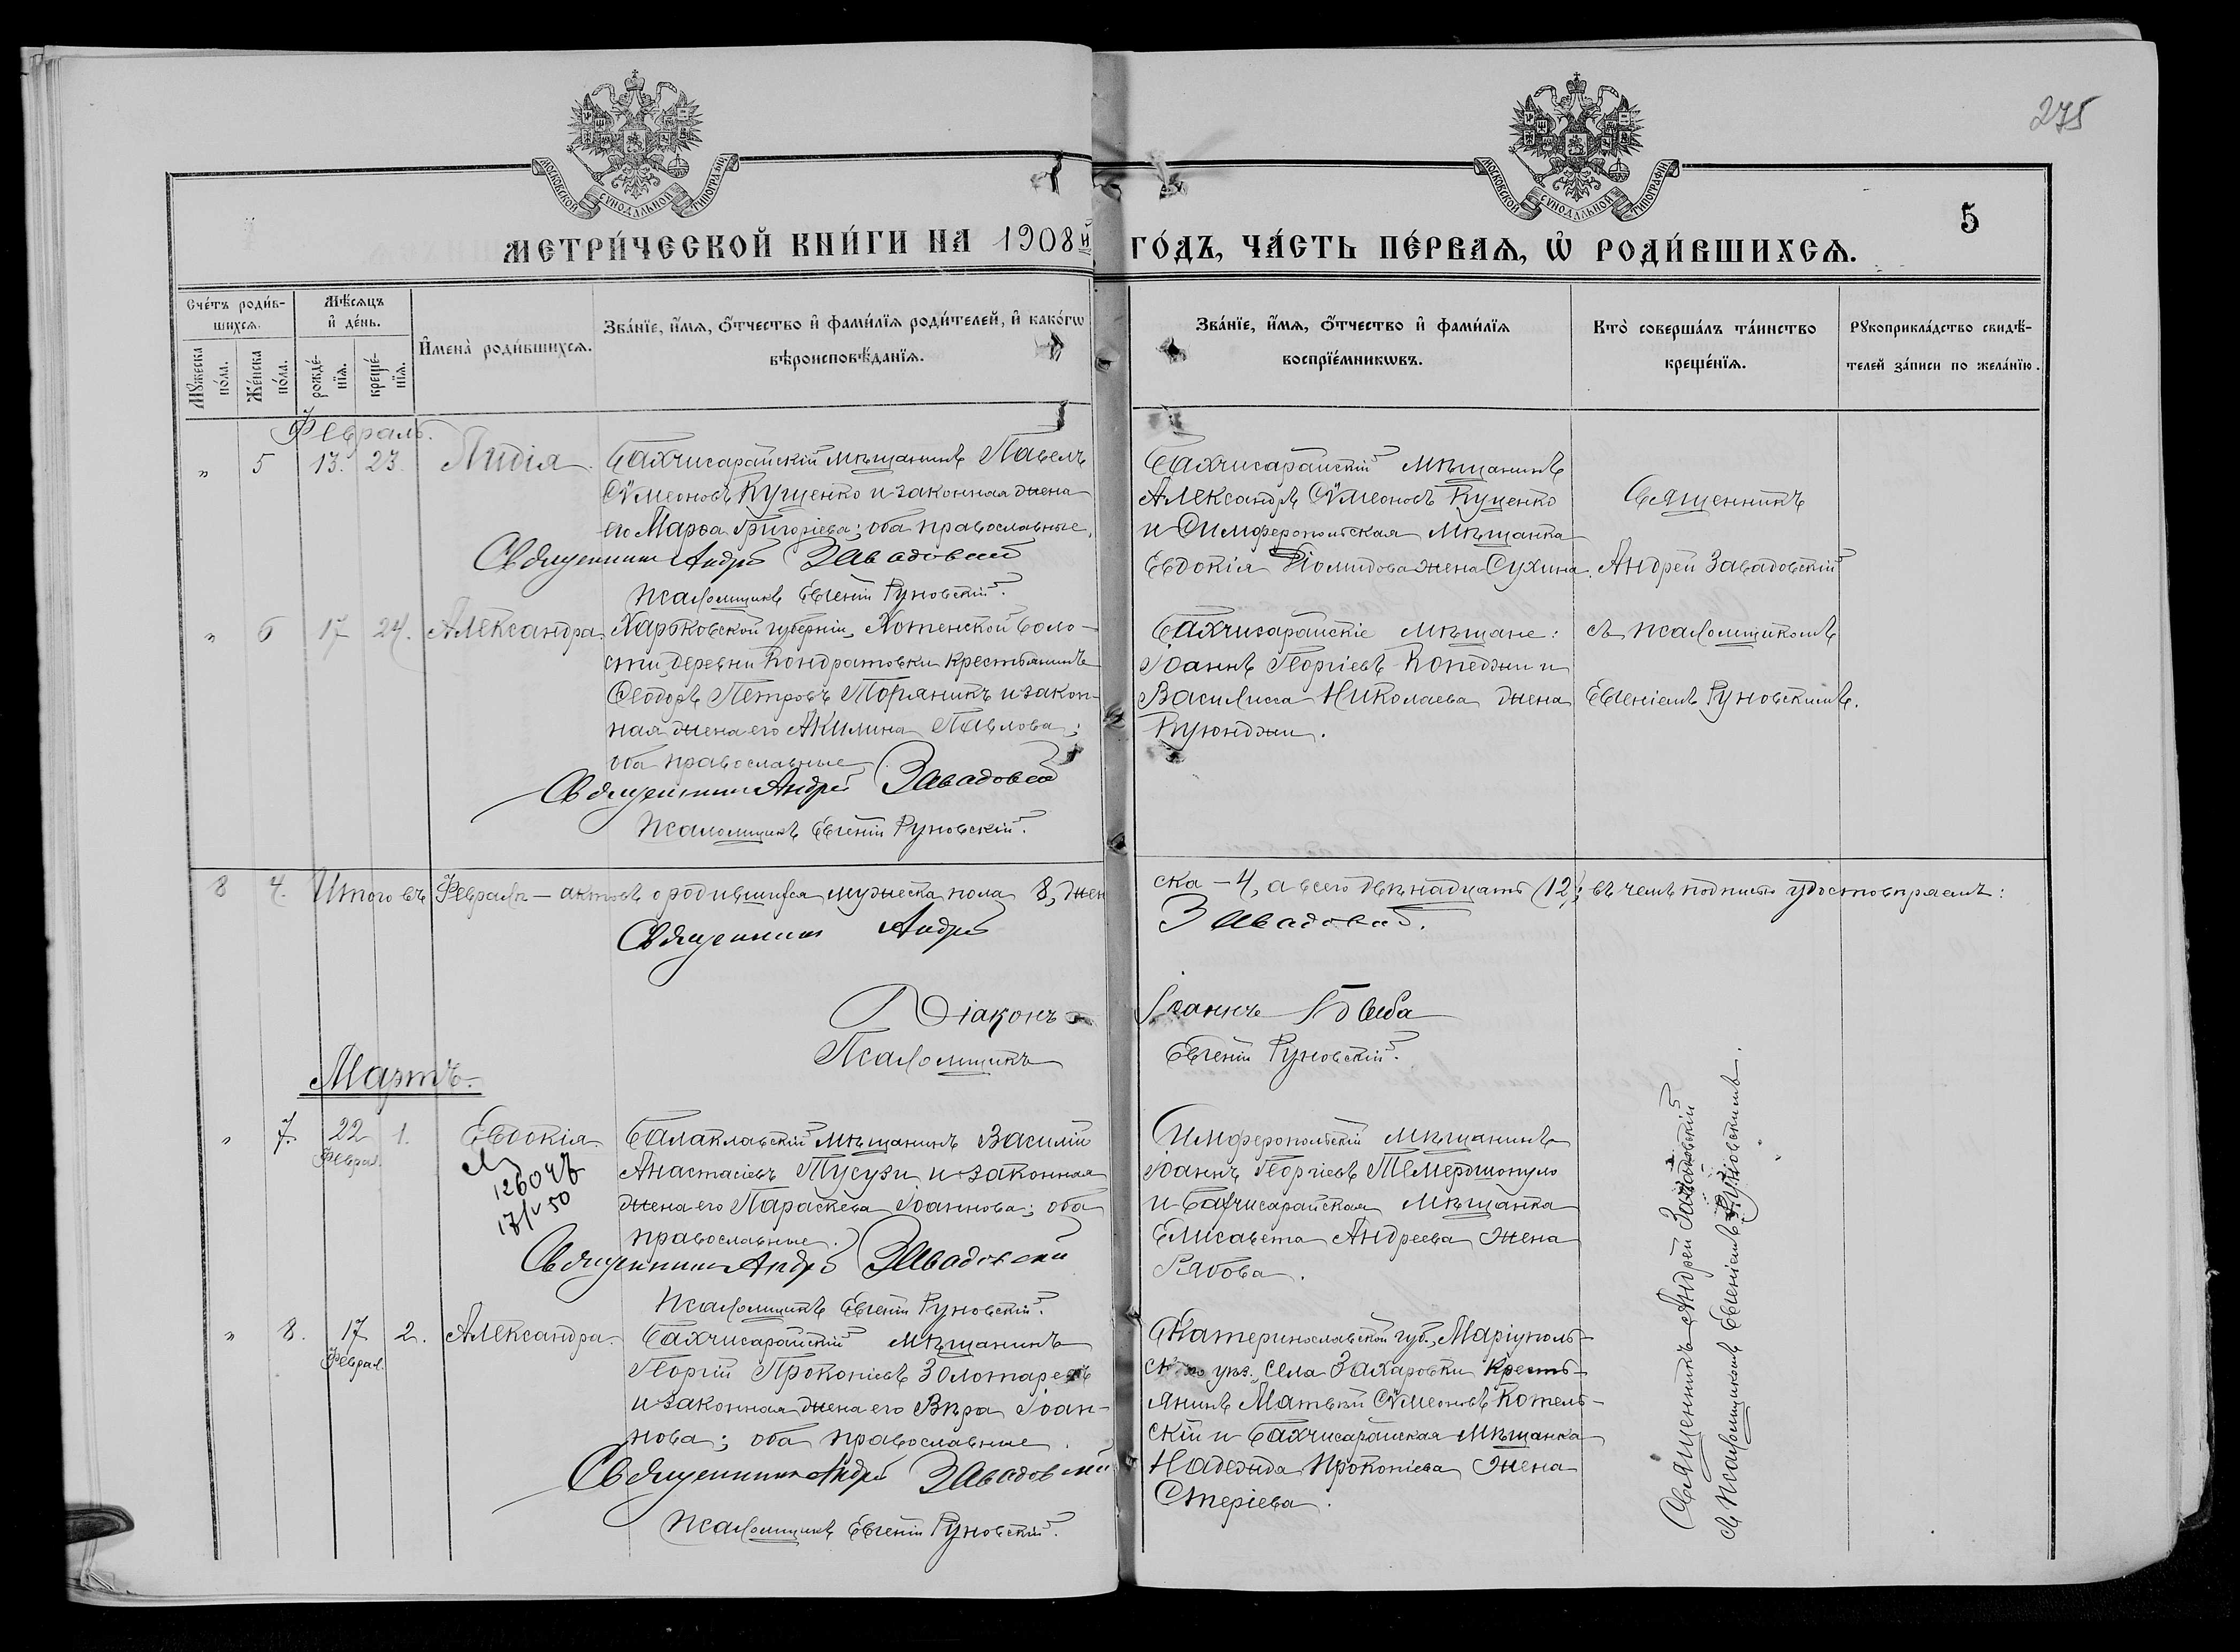 275
МОСКОВСКОЙ СУНОДАЛЬНОЙ ТИПОГРАФІИ
МОСКОВСКОЙ СУНОДАЛЬНОЙ ТИПОГРАФІИ
5
МЕТРИ́ЧЕСКОЙ КНИ́ГИ НА 1908й ГО́ДЪ, ЧА́СТЬ ПЕ́РВАѦ, Ѡ҆ РОДИ́ВШИХСѦ.
Сче́тъ роди́в-
шихсѧ.
Мꙋ́жеска
по́ла.
Же́нска
по́ла.
Мѣ́сѧцъ
и҆ де́нь.
рожде́-
нїѧ.
креще́-
нїѧ.
И҆мена̀ роди́вшихсѧ.
Зва́нїе, и҆́мѧ, ѻ҆́тчество и҆ фами́лїѧ роди́телей, и҆ како́гѡ
вѣроисповѣ́данїѧ.
Зва́нїе, и҆́мѧ, ѻ҆́тчество и҆ фами́лїѧ
воспрїе́мникѡвъ.
Кто̀ соверша́лъ та́инство
креще́нїѧ.
Рꙋкоприкла́дство свидѣ́-
телей за́писи по жела́нїю.
Февраль.
" 5 13. 23. Лидія.
Бахчисарайскій мѣщанинъ Павелъ
Сѵмеоновъ Куценко и законная жена
его Марѳа Григоріева; оба православные.
Священникъ Андрей Завадовскій
Псаломщикъ Евгеній Руновскій.
Бахчисарайскій мѣщанинъ
Александръ Сѵмеоновъ Куценко
и Симферопольская мѣщанка
Евдокія Діомидова жена Сухина.
Священникъ
Андрей Завадовскій
" 6 17 24. Александра.
Харьковской губерніи, Хотенской воло-
сти, деревни Кондратовки крестьянинъ
Ѳеодоръ Петровъ Торяникъ и закон-
ная жена его Акилина Павлова;
оба православные
Священникъ Андрей Завадовскій
Псаломщикъ Евгеній Руновскій.
Бахчисарайскіе мѣщане:
Іоаннъ Георгіевъ Копеджи и
Василисса Николаева жена
Куюнджи.
съ псаломщикомъ
Евгеніемъ Руновскимъ.
8 4. Итого въ Февралѣ — актовъ о родившихся мужеска пола 8, жен
ска — 4, а всего двѣнадцать (12); въ чемъ подписью удостовѣряемъ:
Священникъ Андрей Завадовскій.
Діаконъ Іоаннъ
Псаломщикъ Евгеній Руновскій.
Мартъ.
" 7. 22 1. Евдокія
Феврал.
12604
17/V 50
Балаклавскій мѣщанинъ Василій
Анастасіевъ Тусузи и законная
жена его Параскева Іоаннова; оба
православные.
Священникъ Андрей Завадовскій
Псаломщикъ Евгеній Руновскій.
Симферопольскій мѣщанинъ
Іоаннъ Георгіевъ Темершопуло
и Бахчисарайская мѣщанка
Елисавета Андреева жена
Рябова.
" 8. 17 2. Александра.
Феврал.
Бахчисарайскій мѣщанинъ
Георгій Прокопіевъ Золотаревъ
и законная жена его Вѣра Іоан-
нова; оба православные.
Священникъ Андрей Завадовскій
Псаломщикъ Евгеній Руновскій.
Екатеринославской губ., Маріуполь-
скаго уѣз. села Захаровки кресть-
янинъ Матѳей Сѵмеоновъ Котель-
скій и Бахчисарайская мѣщанка
Надежда Прокопіева жена
Стеріева.
Священникъ Андрей Завадовскій
съ псаломщикомъ Евгеніемъ Руновскимъ.